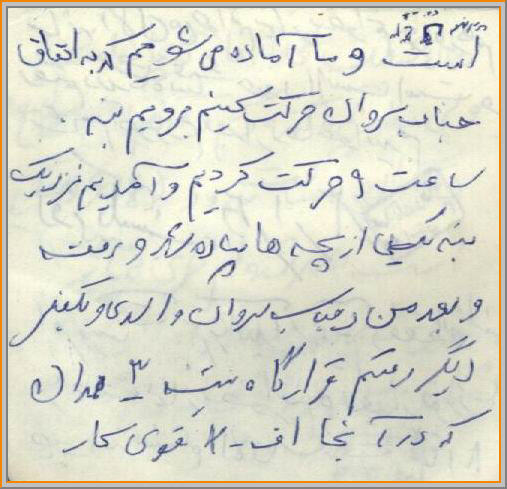 است و ما آماده می شویم که به اتفاق
جناب سروان حرکت کنیم برویم بنه .
ساعت ۹ حرکت کردیم و آمدیم نزدیک
بنه یکی از بچه ها پیاده شد و رفت
و بعد من و جناب سروان و الدی و یکنفر
دیگر رفتیم قرارگاه تیپ ۳ همدان
که در آنجا اف - ۴ قوی